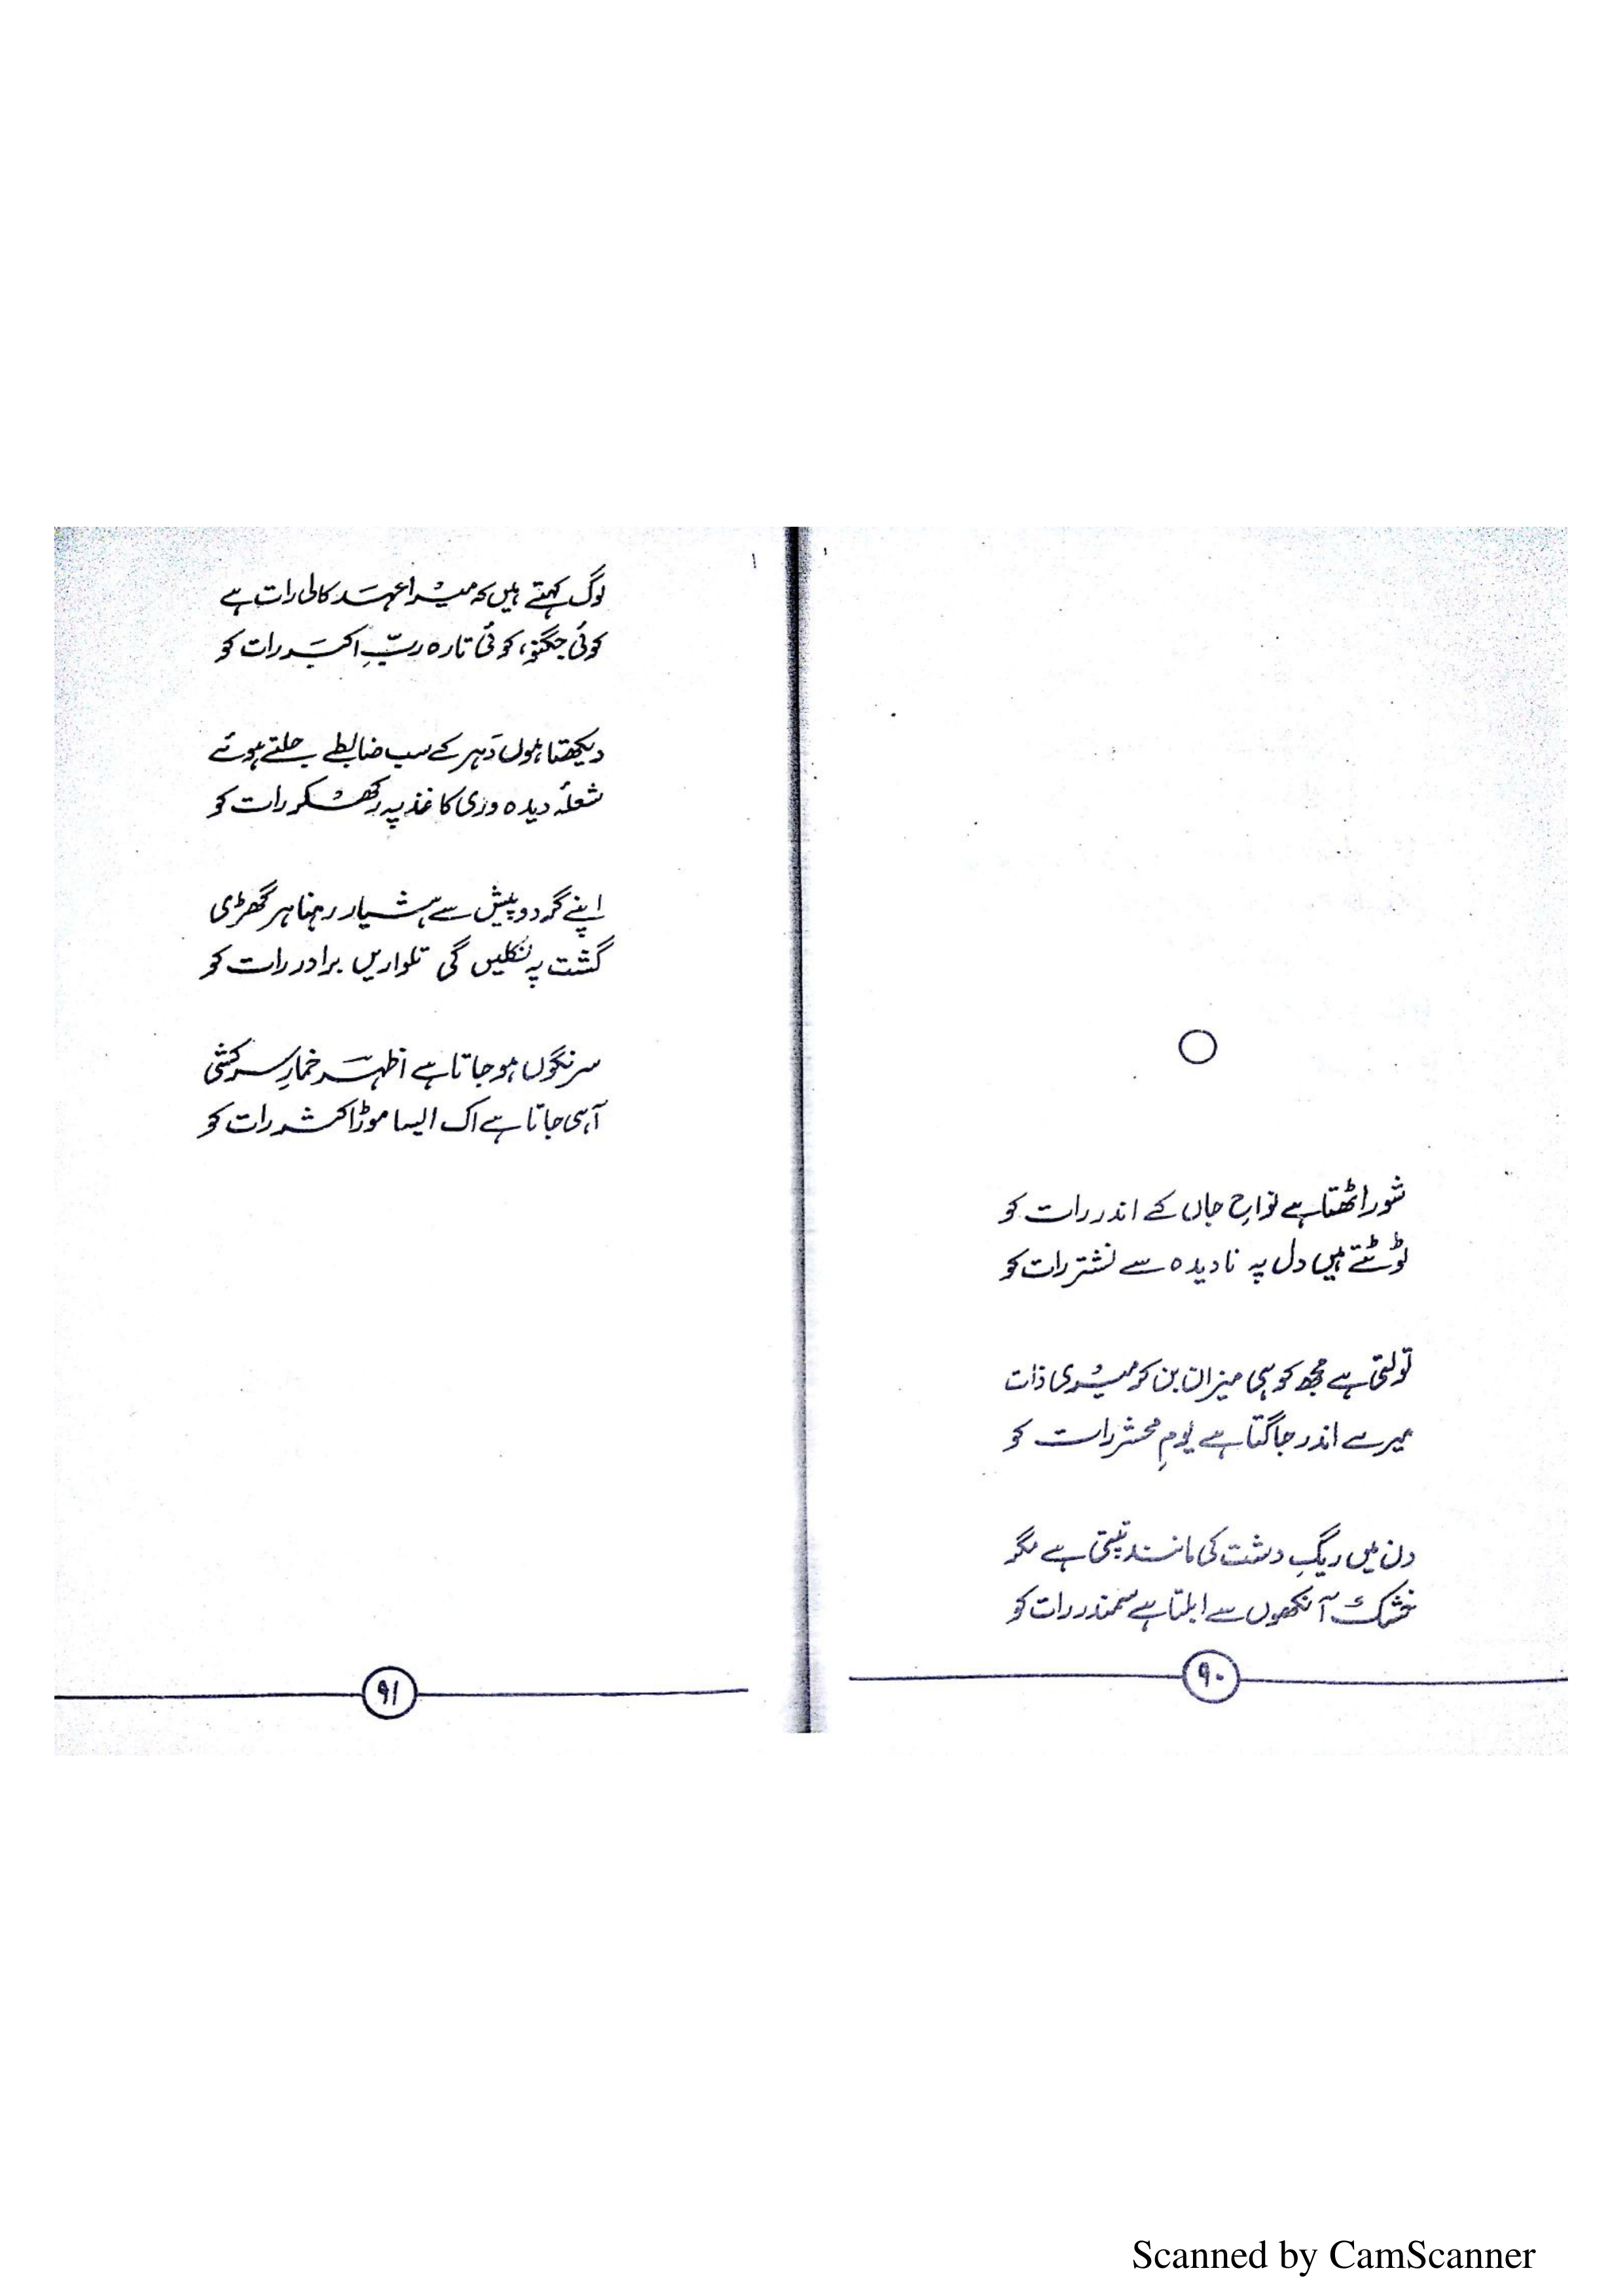 شور اٹھتا ہے نواحِ جاں کے اندر رات کو
ٹوٹتے ہیں دل پہ نادیدہ سے نشتر رات کو
تولتی ہے مجھ کو ہی میزان بن کر میری ذات
میرے اندر جاگتا ہے یومِ محشر رات کو
دن میں ریگِ دشت کی مانند تپتی ہے مگر
خشک آنکھوں سے ابلتا ہے سمندر رات کو
۹۰
لوگ کہتے ہیں کہ میرا عہد کالی رات ہے
کوئی جگنو، کوئی تارہ ربِّ اکبر رات کو
دیکھتا ہوں دَہر کے سب ضابطے جلتے ہوئے
شعلۂ دیدہ وری کاغذ پہ رکھ کر رات کو
اپنے گردو پیش سے ہشیار رہنا ہر گھڑی
گشت پہ نکلیں گی تلواریں برادر رات کو
سرنگوں ہو جاتا ہے اظہر خمارِ سرکشی
آ ہی جاتا ہے اک ایسا موڑ اکثر رات کو
۹۱
Scanned by CamScanner